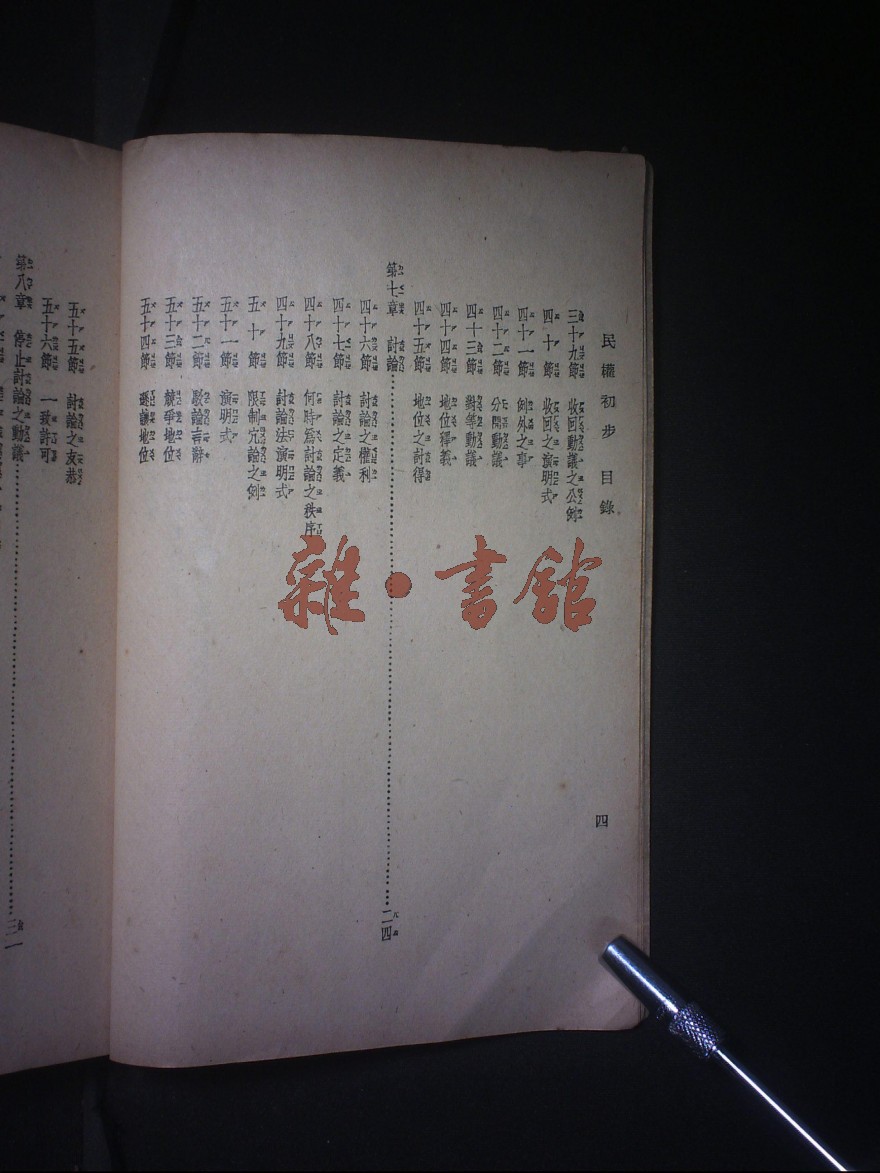 民權初步 目錄
四
三十九節 收回動議之公例
四十節 收回之演明式
四十一節 例外之事
四十二節 分開動議
四十三節 對等動議
四十四節 地位釋義
四十五節 地位之討得
第七章 討論……二四
四十六節 討論之權利
四十七節 討論之定義
四十八節 何時為討論之秩序
四十九節 討論法演明式
五十節 限制冗論之例
五十一節 演明式
五十二節 駁論言辭
五十三節 競爭地位
五十四節 遜讓地位
五十五節 討論之友恭
五十六節 一致許可
第八章 停止討論之動議……三一
雜·書館